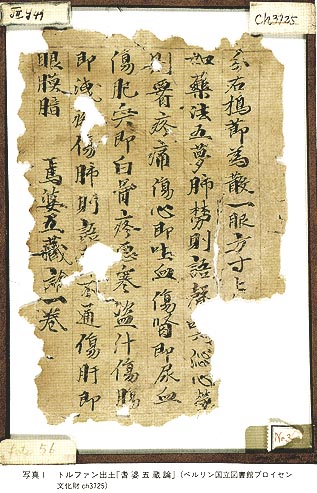 Ch3725
分右搗篩為散一服方寸匕
如藥法五勞肺勞則語聲 心勞
則骨疼痛傷心即吐血傷腎即尿血
傷肥 即白骨疼惡寒盜汗傷腸
即洩 傷肺則語 不通傷肝即
眼膜 耆婆五藏論一卷
56
No.3
写真1 トルファン出土「耆婆五蔵論」(ベルリン国立図書館プロイセン
文化財 ch3725)